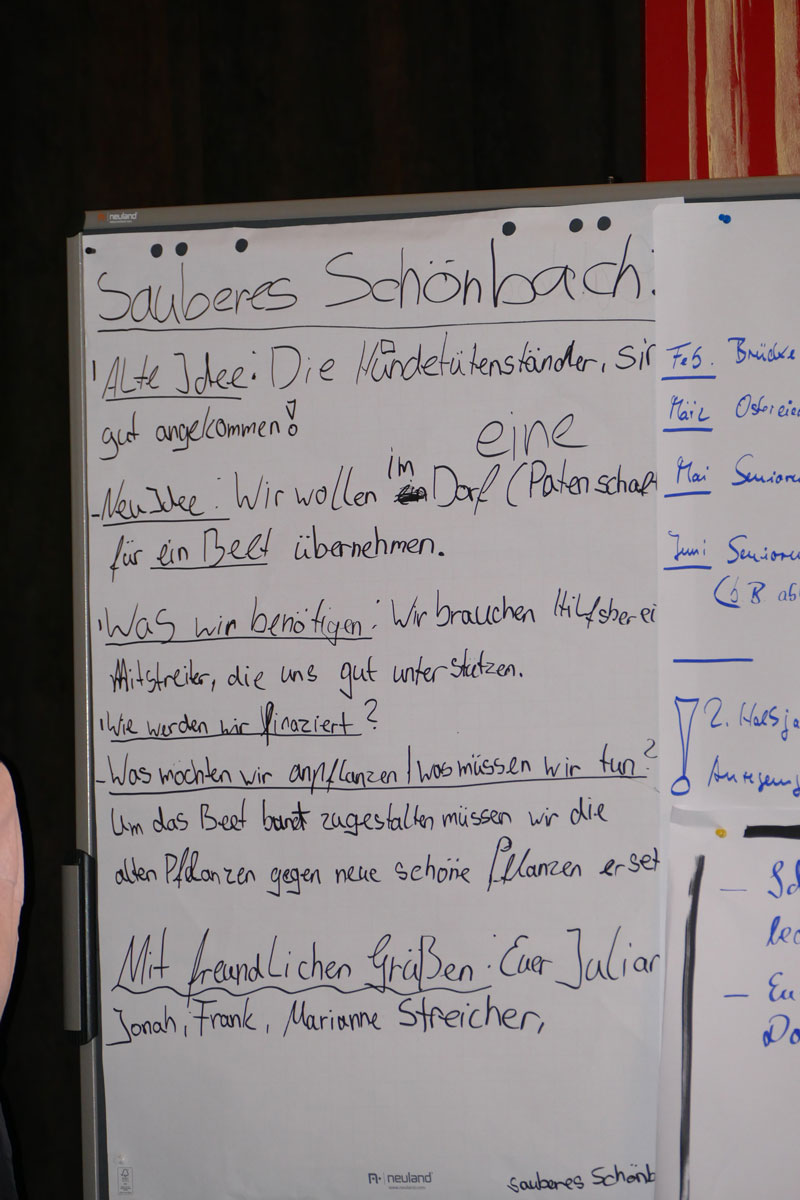 neuland
Säuberes Schönbäch:
'Alte Idee: Die Hündetütenständer, sin
gut angekommen!
eine
- Neu Idee: Wir wollen im Dorf (Patenschaft
für ein Beet übernehmen.
'Was wir benötigen: Wir brauchen Hilfsberei
Mitstreiter, die uns gut unterstützen.
'Wie werden wir finaziert?
- Was möchten wir anpflanzen / was müssen wir tun?
Um das Beet bunt zugestalten müssen wir die
alten Pfdanzen gegen neue schöne Pflanzen erset
Mit freundlichen Grüßen: Euer Julian
Jonah, Frank, Marianne Streicher,
neuland
www.neuland.com
sauberes Schönb
Feb. Brücke
März Osterei
Mai Senioren
Juni Senioren
ab
2. Halbja
Anregung